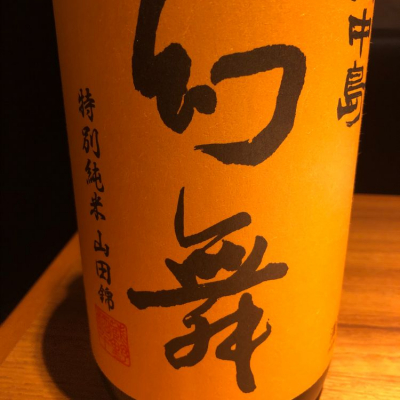 中島
幻舞
特別純米 山田錦